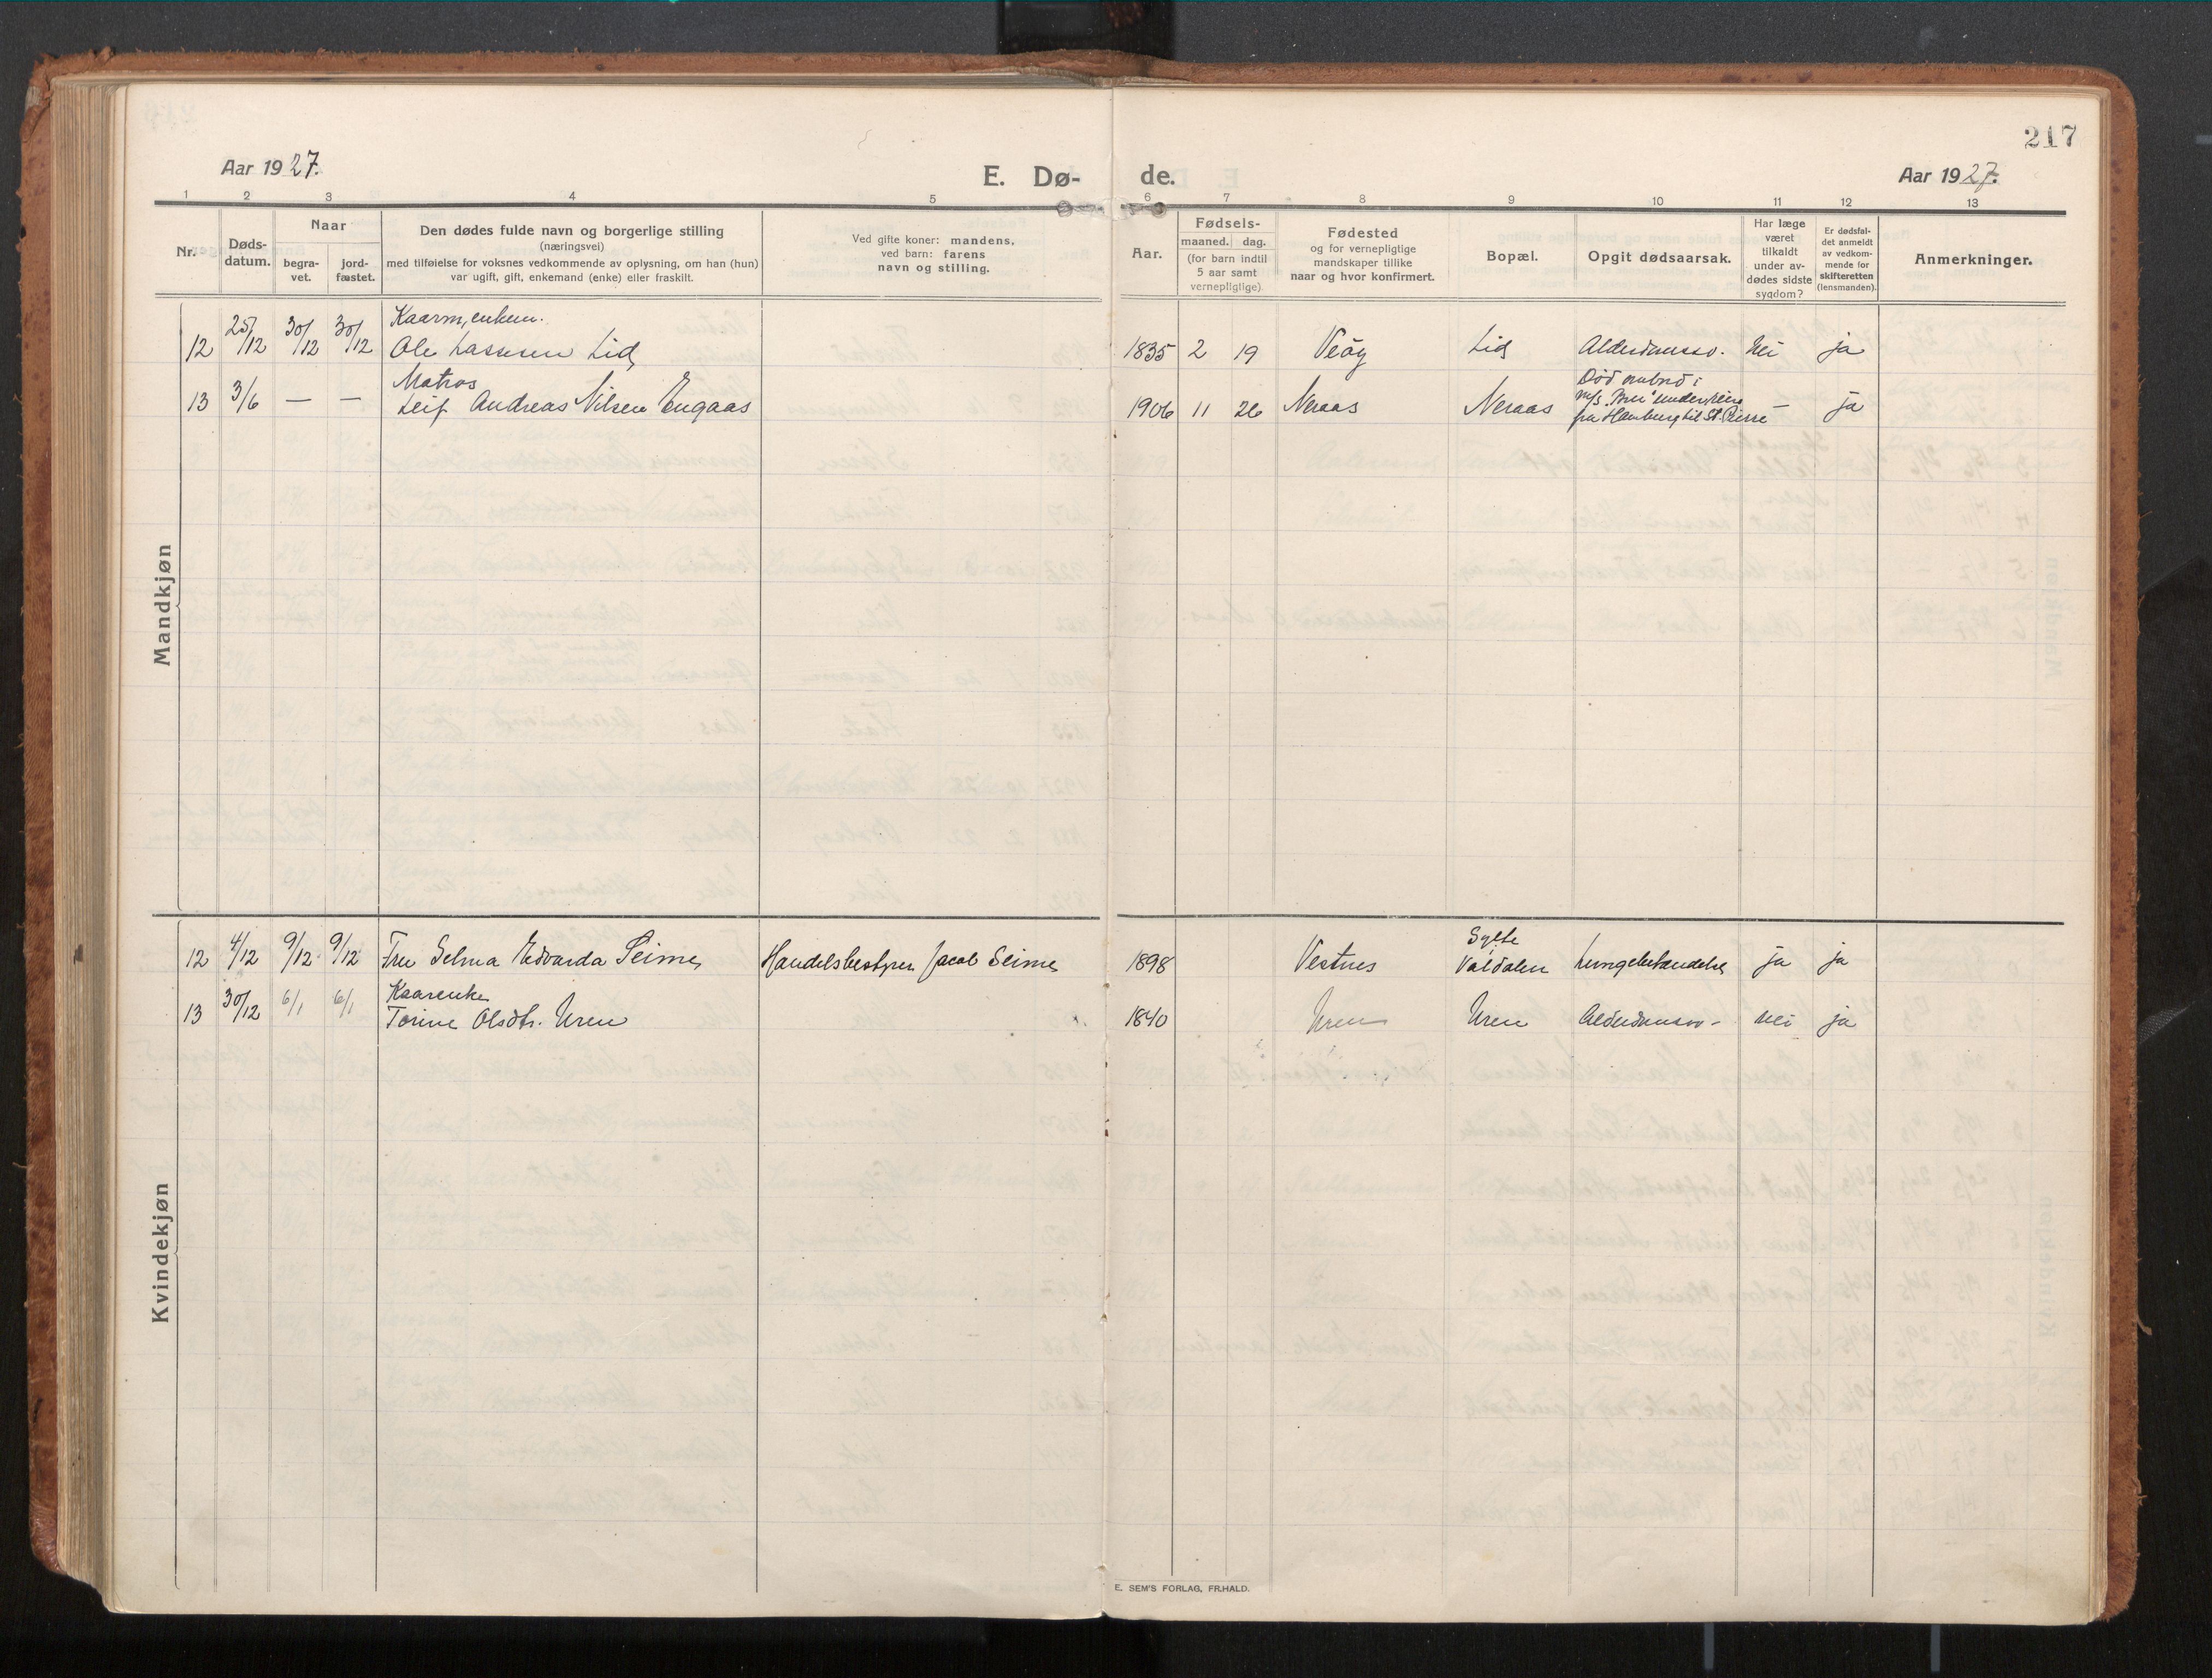 217
Aar 1927.
E. Dø- de.
Aar 1927.
1 2 3 4 5 6 7 8 9 10 11 12 13
Nr.
Døds-
datum.
Naar
begra-
vet.
jord-
fæstet.
Den dødes fulde navn og borgerlige stilling
(næringsvei)
med tilføielse for voksnes vedkommende av oplysning, om han (hun)
var ugift, gift, enkemand (enke) eller fraskilt.
Ved gifte koner: mandens,
ved barn: farens
navn og stilling.
Aar.
Fødsels-
maaned. dag.
(for barn indtil
5 aar samt
vernepligtige)
Fødested
og for vernepligtige
mandskaper tillike
naar og hvor konfirmert.
Bopæl.
Opgit dødsaarsak.
Har læge
været
tilkaldt
under av-
dødes sidste
sygdom?
Er dødsfal-
det anmeldt
av vedkom-
mende for
skifteretten
(lensmanden).
Anmerkninger.
Mandkjøn
Kaarm, enkem.
12 25/12 30/12 30/12 Ole Lassesen Lid 1835 2 19 Veøy Lid Alderdomssv. Nei ja
Matros
13 3/6 — — Leif Andreas Nilsen Engaas 1906 11 26 Neraas Neraas — ja
Død ombord i
m/s. under reise
fra Hamburg til St. Pierre
Kvindekjøn
12 4/12 9/12 9/12 Fru Selma Edvarda Seime Handelsbestyrer Jacob Seime 1898 Vestnes Sylte
Valdalen Lungebetændelse ja ja
Kaarenke
13 30/12 6/1 6/1 Torine Olsdtr. Uren 1840 Uren Uren Alderdomssv- Nei ja
E. SEM'S FORLAG, FR.HALD.